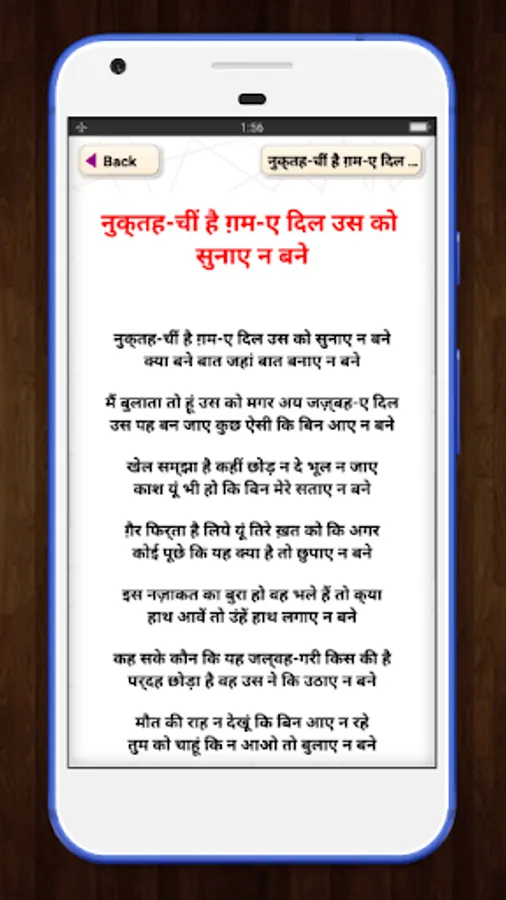 1:56
Back
नुक्तह-चीं है ग़म-ए दिल ...
नुक्तह-चीं है ग़म-ए दिल उस को
सुनाए न बने
नुक्तह-चीं है ग़म-ए दिल उस को सुनाए न बने
क्या बने बात जहां बात बनाए न बने
मैं बुलाता तो हूं उस को मगर अय जज़्बह-ए दिल
उस यह बन जाए कुछ ऐसी कि बिन आए न बने
खेल सम्झा है कहीं छोड़ न दे भूल न जाए
काश यूं भी हो कि बिन मेरे सताए न बने
ग़ैर फिर्ता है लिये यूं तिरे ख़त को कि अगर
कोई पूछे कि यह क्या है तो छुपाए न बने
इस नज़ाकत का बुरा हो वह भले हैं तो क्या
हाथ आवें तो उंहें हाथ लगाए न बने
कह सके कौन कि यह जल्वह-गरी किस की है
पर्दह छोड़ा है वह उस ने कि उठाए न बने
मौत की राह न देखूं कि बिन आए न रहे
तुम को चाहूं कि न आओ तो बुलाए न बने